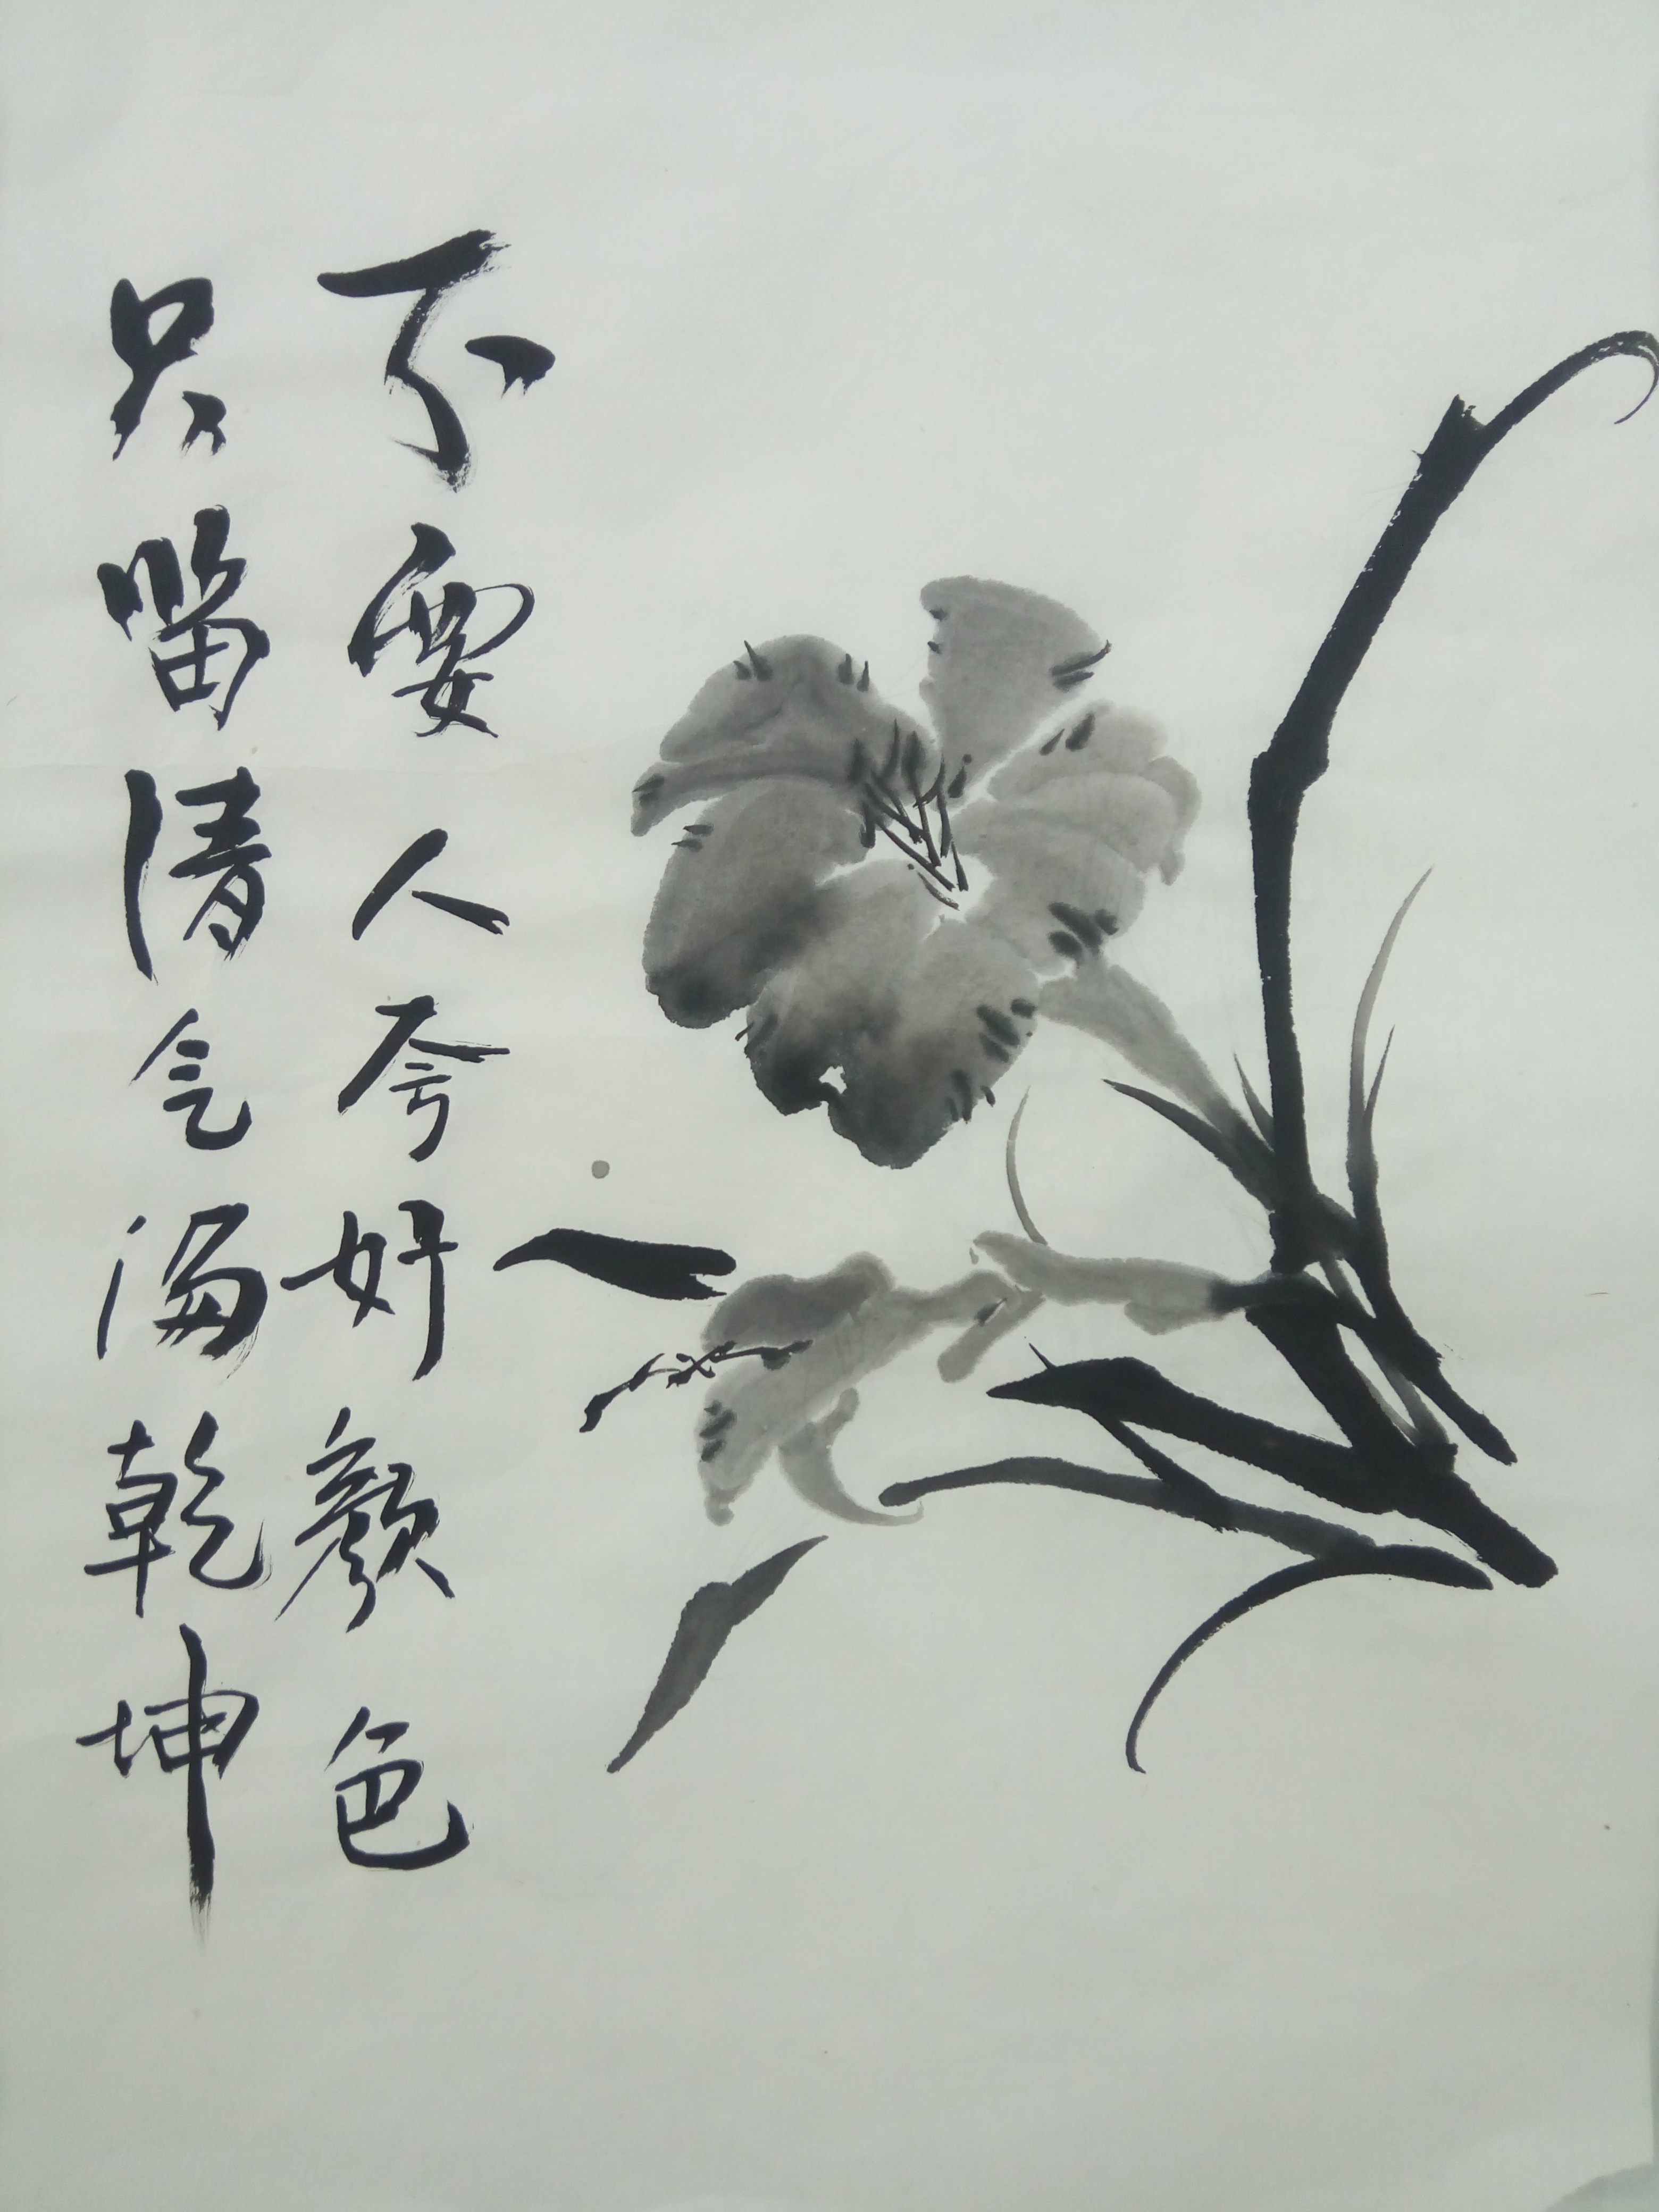 不要人夸好颜色
只留清气满乾坤